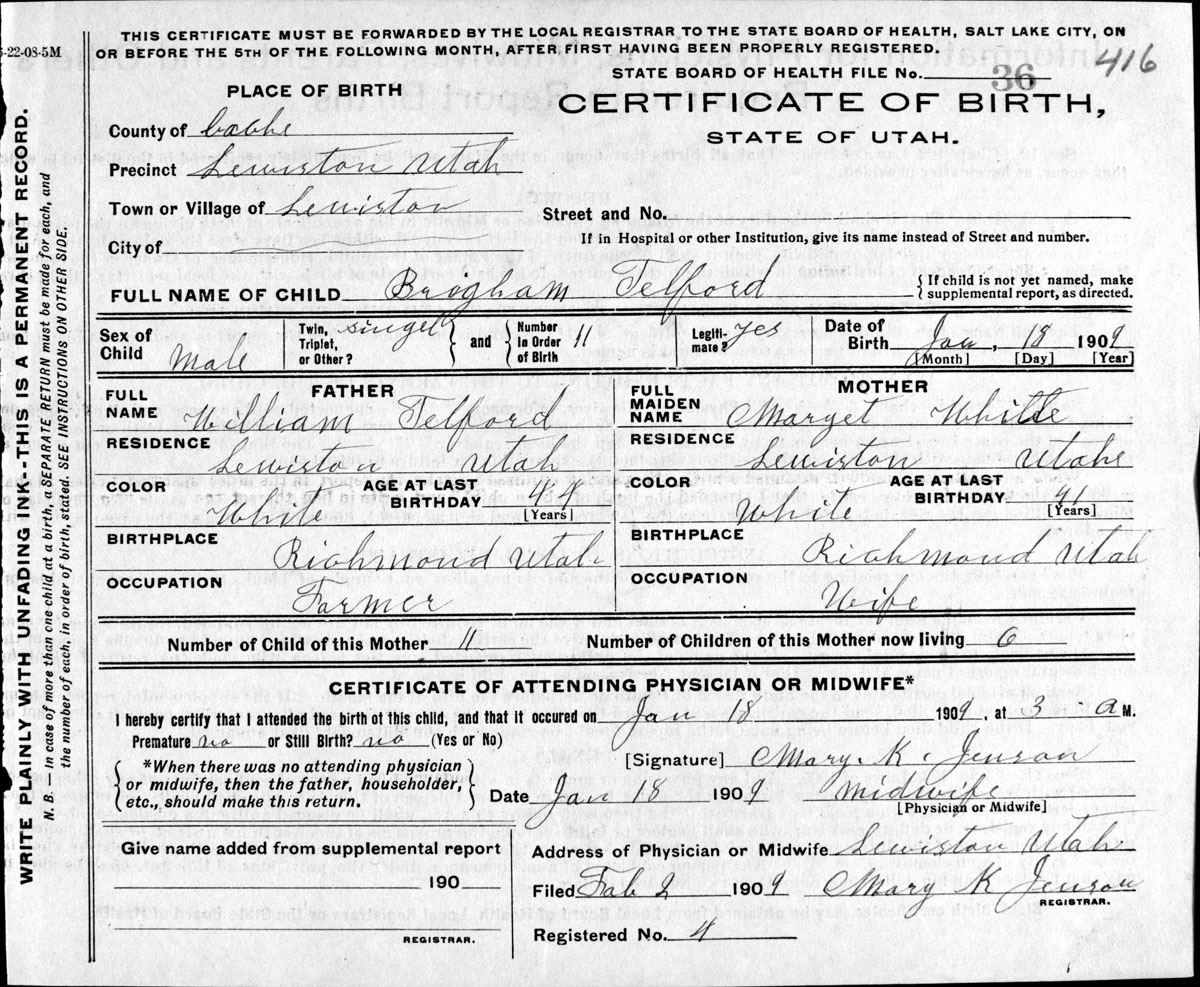 THIS CERTIFICATE MUST BE FORWARDED BY THE LOCAL REGISTRAR TO THE STATE BOARD OF HEALTH, SALT LAKE CITY, ON
5-22-08-5M OR BEFORE THE 5TH OF THE FOLLOWING MONTH, AFTER FIRST HAVING BEEN PROPERLY REGISTERED.
416
STATE BOARD OF HEALTH FILE No. 36
PLACE OF BIRTH
CERTIFICATE OF BIRTH,
STATE OF UTAH.
County of Cache
Precinct Lewiston Utah
Town or Village of Lewiston
Street and No.
City of
If in Hospital or other Institution, give its name instead of Street and number.
FULL NAME OF CHILD Brogham Telford { If child is not yet named, make
supplemental report, as directed.
Sex of Child Male Twin, Triplet, or Other? singel } and { Number in Order of Birth 11 Legiti-mate? yes Date of Birth Jan, 18 1909
[Month] [Day] [Year]
FATHER MOTHER
FULL NAME William Telford FULL MAIDEN NAME Marget White
RESIDENCE RESIDENCE
Lewiston Utah Lewiston Utahe
COLOR White AGE AT LAST BIRTHDAY 44 [Years] COLOR White AGE AT LAST BIRTHDAY 41 [Years]
BIRTHPLACE BIRTHPLACE
Richmond Utah Richmond Utah
OCCUPATION OCCUPATION
Farmer Wife
Number of Child of this Mother 11 Number of Children of this Mother now living 6
CERTIFICATE OF ATTENDING PHYSICIAN OR MIDWIFE*
I hereby certify that I attended the birth of this child, and that it occured on Jan 18 1909, at 3 a M.
Premature no or Still Birth? no (Yes or No)
*When there was no attending physician
or midwife, then the father, householder,
etc., should make this return.
[Signature] Mary. K. Jenson
Date Jan 18 1909 midwife
[Physician or Midwife]
Give name added from supplemental report
190
REGISTRAR.
Address of Physician or Midwife Lewiston Utah
Filed Fab 2 1909 Mary K Jenson
REGISTRAR.
Registered No. 4
WRITE PLAINLY WITH UNFADING INK--THIS IS A PERMANENT RECORD.
N. B.—In case of more than one child at a birth, a SEPARATE RETURN must be made for each, and
the number of each, in order of birth, stated. SEE INSTRUCTIONS ON OTHER SIDE.